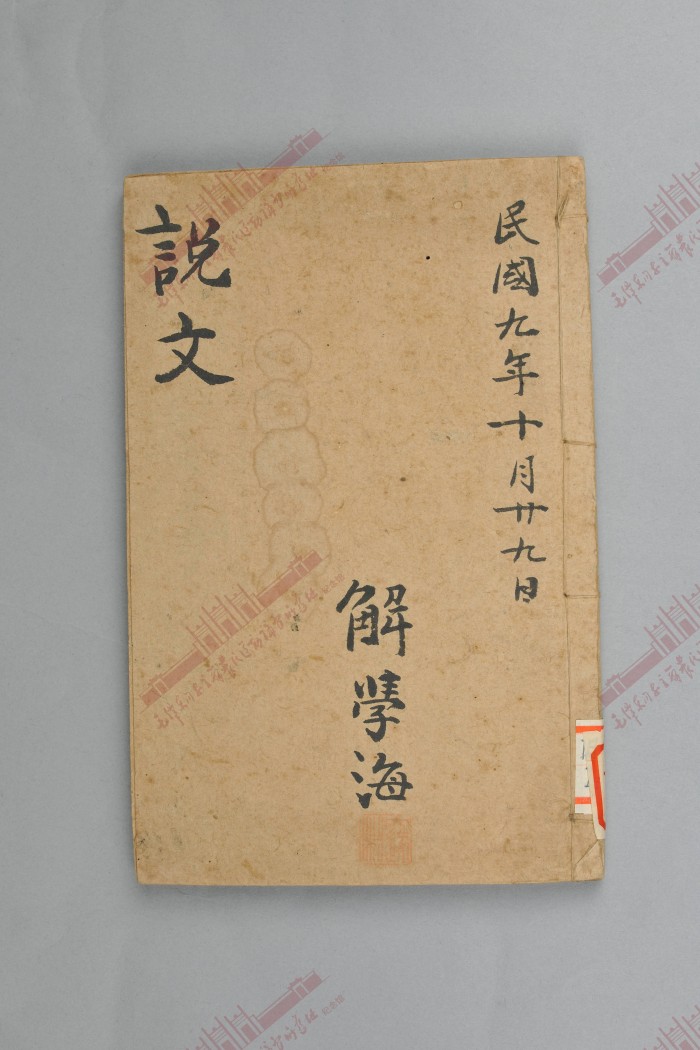 民國九年十月廿九日
解學海
說文